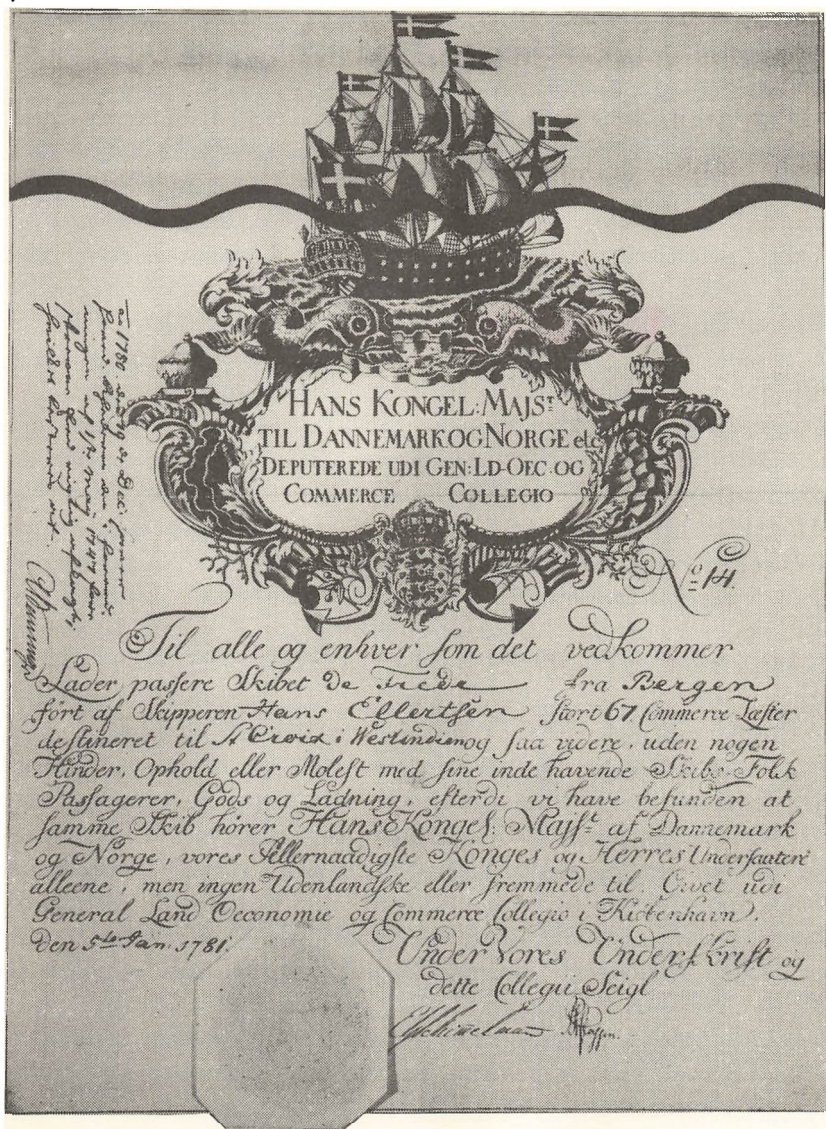 HANS KONGEL: MAJS:t
TIL DANNEMARK OG NORGE etc
DEPUTEREDE UDI GEN: LD-OEC-OG
COMMERCE COLLEGIO
No 14
Til alle og enhver som det vedkommer
Lader passere Skibet De Fiede fra Bergen
ført af Skipperen Hans Ellertsen stort 67 Commerce Læster
destineret til St Croix i Westindien og saa videre, uden nogen
Hinder, Ophold eller Molest med sine inde havende Skibs-Folk
Passagerer, Gods og Ladning, efterdi vi have befunden at
samme Skib hører Hans Kongel: Majst af Dannemark
og Norge, vores Allernaadigste Konges og Herres Undersaatere
alleene, men ingen Udenlandske eller fremmede til. Givet udi
General Land Oeconomie og Commerce Collegio i Kiøbenhavn.
den 5te Jan: 1781.
Under Vores Underskrift og
dette Collegii Seigl
1780